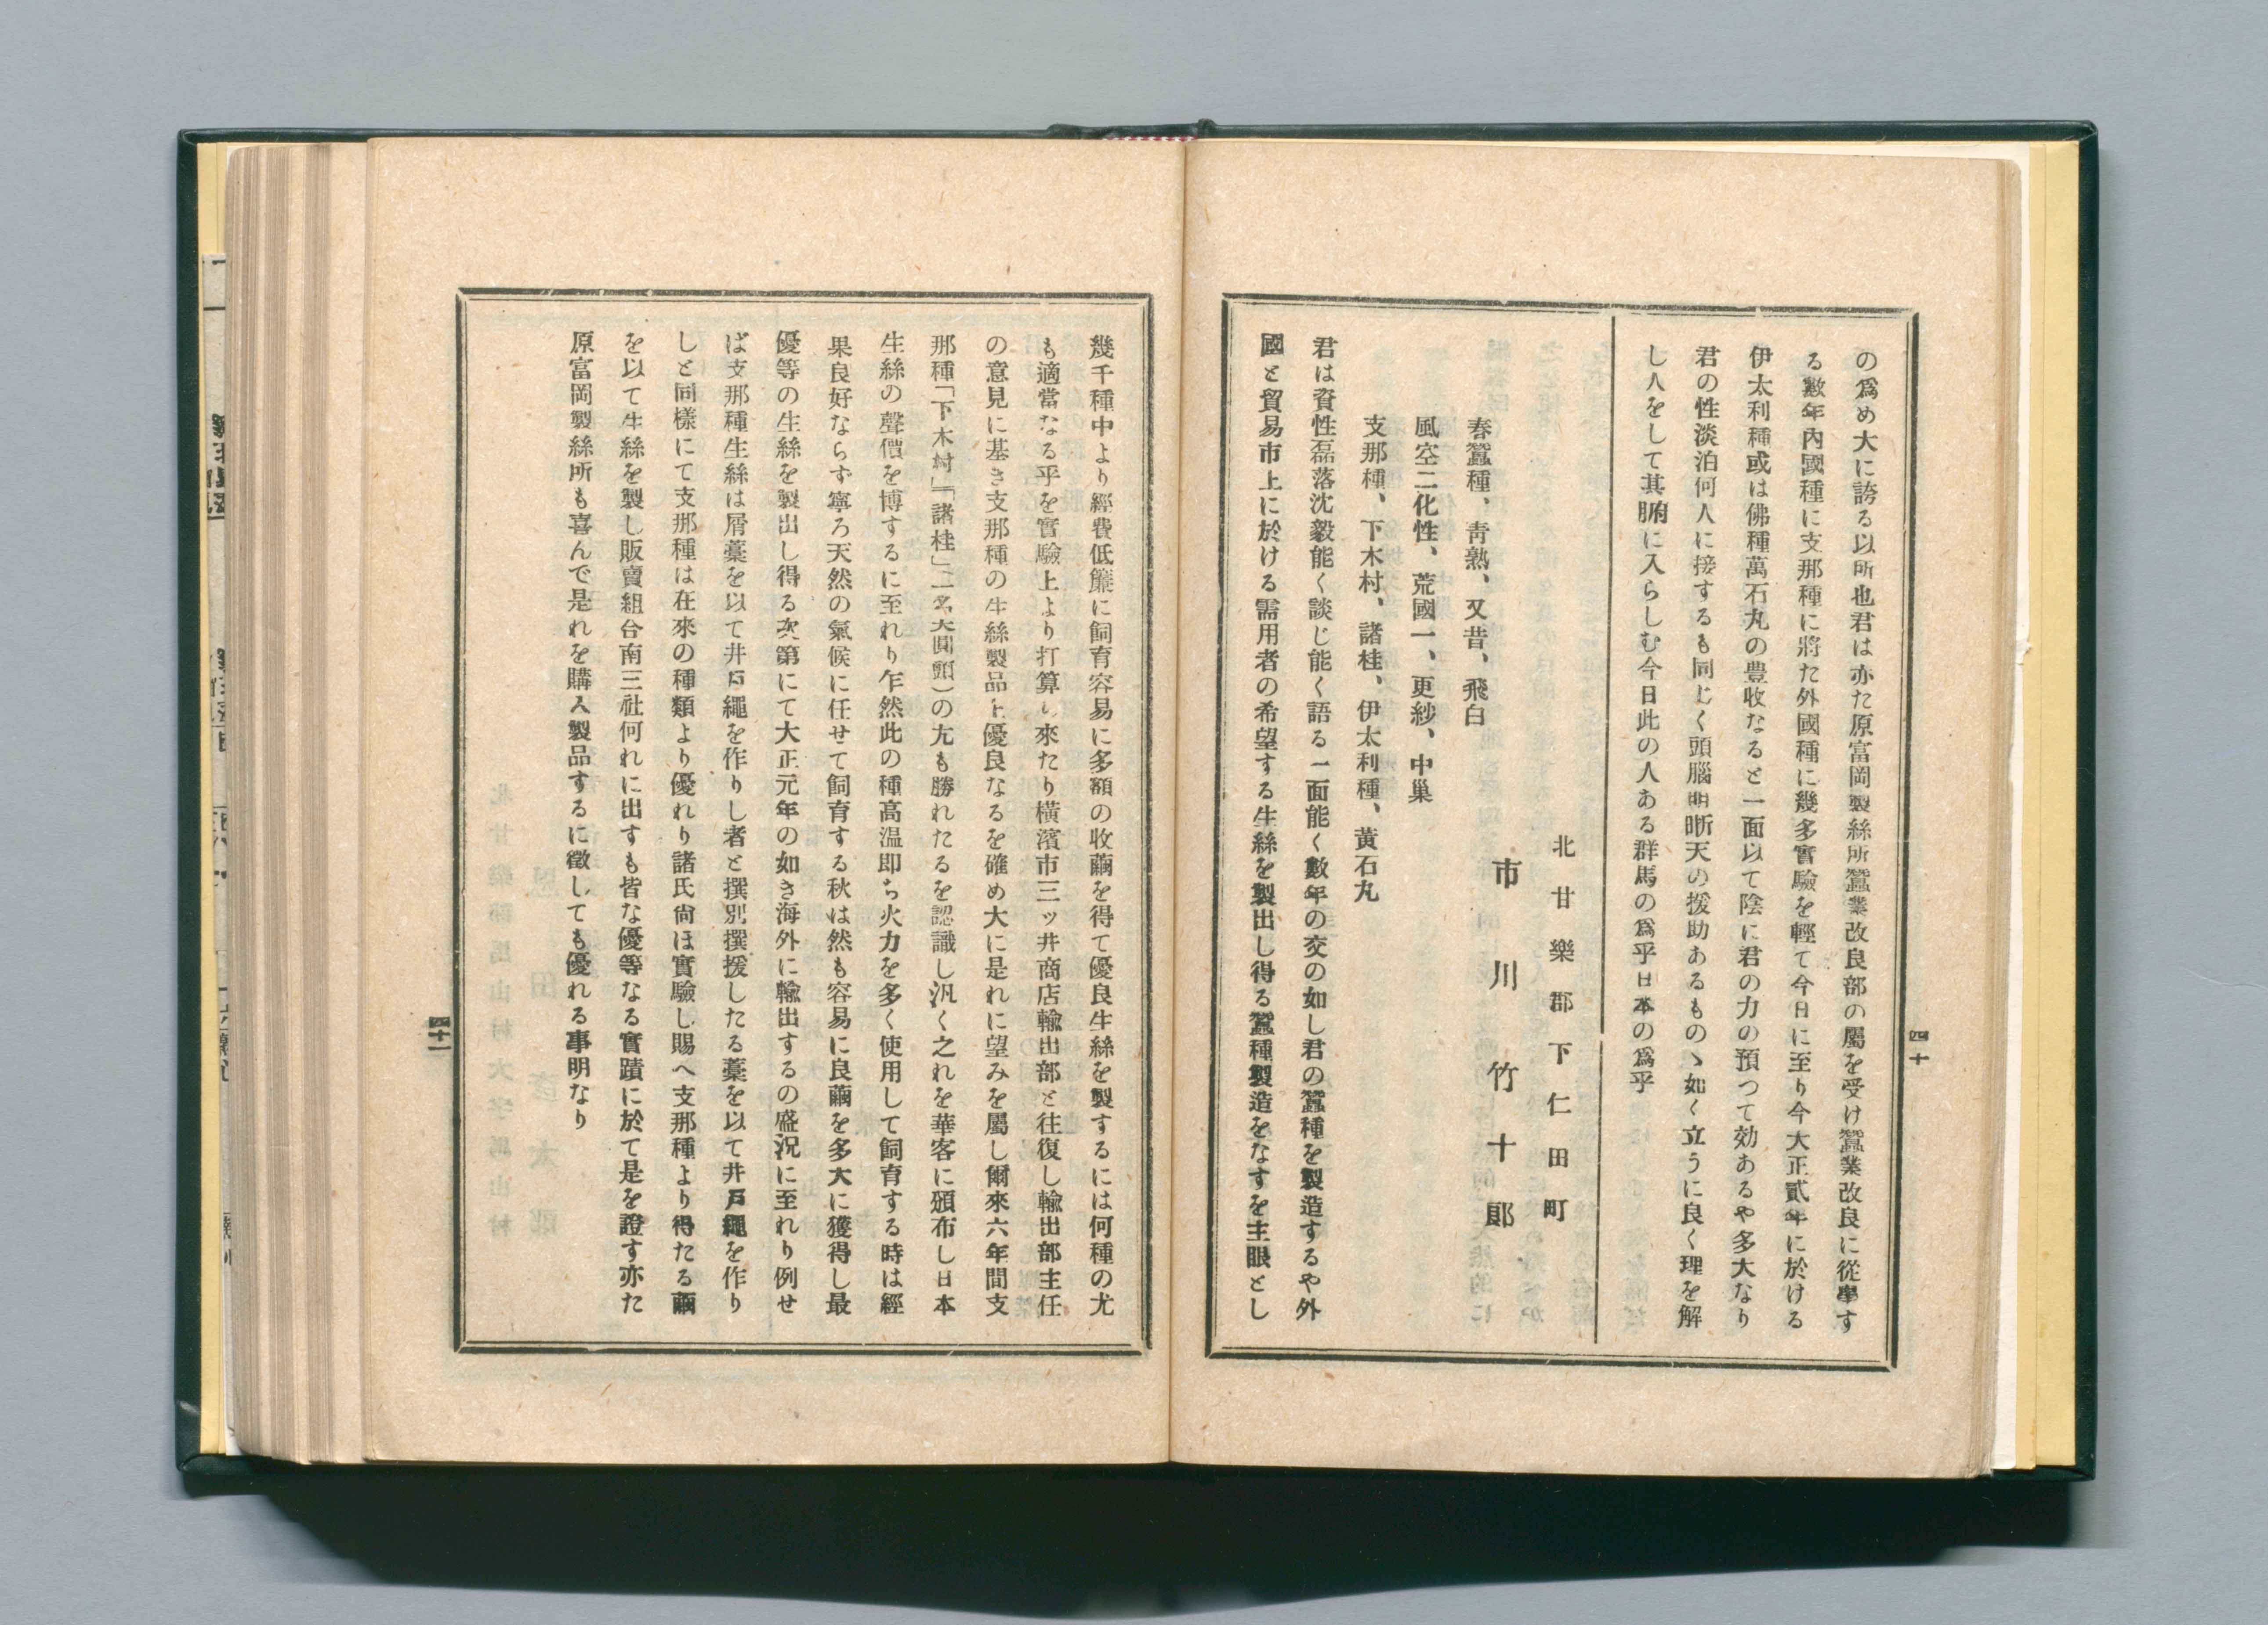 四十
の爲め大に誇る以所也君は亦た原富岡製絲所蠶業改良部の屬を受け蠶業改良に從事す
る數年內國種に支那種に將た外國種に幾多實驗を輕て今日に至り今大正貳年に於ける
伊太利種或は佛種萬石丸の豊收なると一面以て陰に君の力の預つて効あるや多大なり
君の性淡泊何人に接するも同じく頭腦明晰天の援助あるものゝ如く立うに良く理を解
し人をして其腑に入らしむ今日此の人ある群馬の爲乎日本の爲乎
北甘樂郡下仁田町
市川竹十郞
春蠶種、靑熟、又昔、飛白
風空二化性、荒國一、更紗、中巢
支那種、下木村、諸桂、伊太利種、黃石丸
君は資性磊落沈毅能く談じ能く語る一面能く數年の交の如し君の蠶種を製造するや外
國と貿易市上に於ける需用者の希望する生絲を製出し得る蠶種製造をなすを主眼とし
幾千種中より經費低簾に飼育容易に多額の收繭を得て優良生絲を製するには何種の尤
も適當なる乎を實驗上より打算し來たり橫濱市三ッ井商店輸出部と往復し輸出部主任
の意見に基き支那種の生絲製品上優良なるを確め大に是れに望みを屬し爾來六年間支
那種「下木村」「諸桂」二名大圓頭)の尤も勝れたるを認識し汎く之れを華客に頒布し日本
生絲の聲價を博するに至れり乍然此の種高温即ち火力を多く使用して飼育する時は經
果良好ならず寧ろ天然の氣候に任せて飼育する秋は然も容易に良繭を多大に獲得し最
優等の生絲を製出し得る次第にて大正元年の如き海外に輸出するの盛況に至れり例せ
ば支那種生絲は屑藁を以て井戸繩を作りし者と撰別撰援したる藁を以て井戸繩を作り
しと同樣にて支那種は在來の種類より優れり諸氏尙ほ實驗し賜へ支那種より得たる繭
を以て生絲を製し販賣組合南三社何れに出すも皆な優等なる實蹟に於て是を證す亦た
原富岡製絲所も喜んで是れを購入製品するに徵しても優れる事明なり
四十一